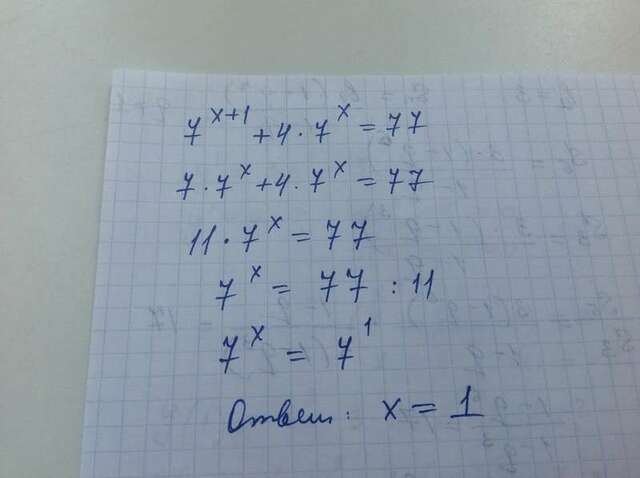 7^{x+1} + 4 · 7^x = 77
7 · 7^x + 4 · 7^x = 77
11 · 7^x = 77
7^x = 77 : 11
7^x = 7^1
Ответ: x = 1